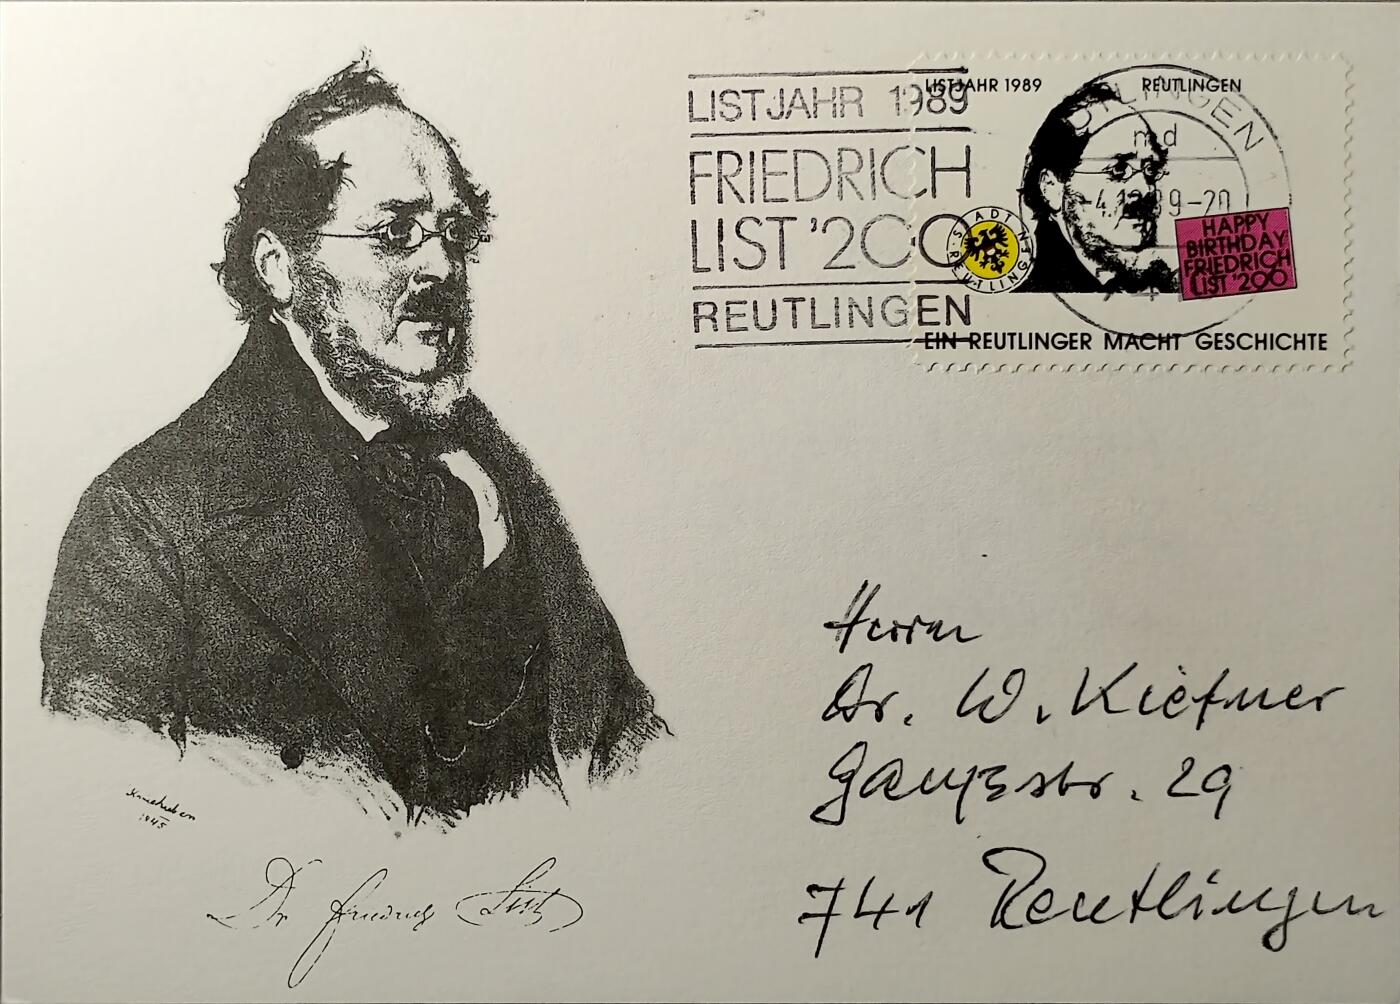 LISTJAHR 1989
FRIEDRICH
LIST '200
REUTLINGEN
LISTJAHR 1989 REUTLINGEN
STADT REUTLINGEN
HAPPY
BIRTHDAY
FRIEDRICH
LIST '200
EIN REUTLINGER MACHT GESCHICHTE
REUTLINGEN
md
-20
Herrn
Dr. W. Kiefner
29
741 Reutlingen
1845
Dr Friedrich List